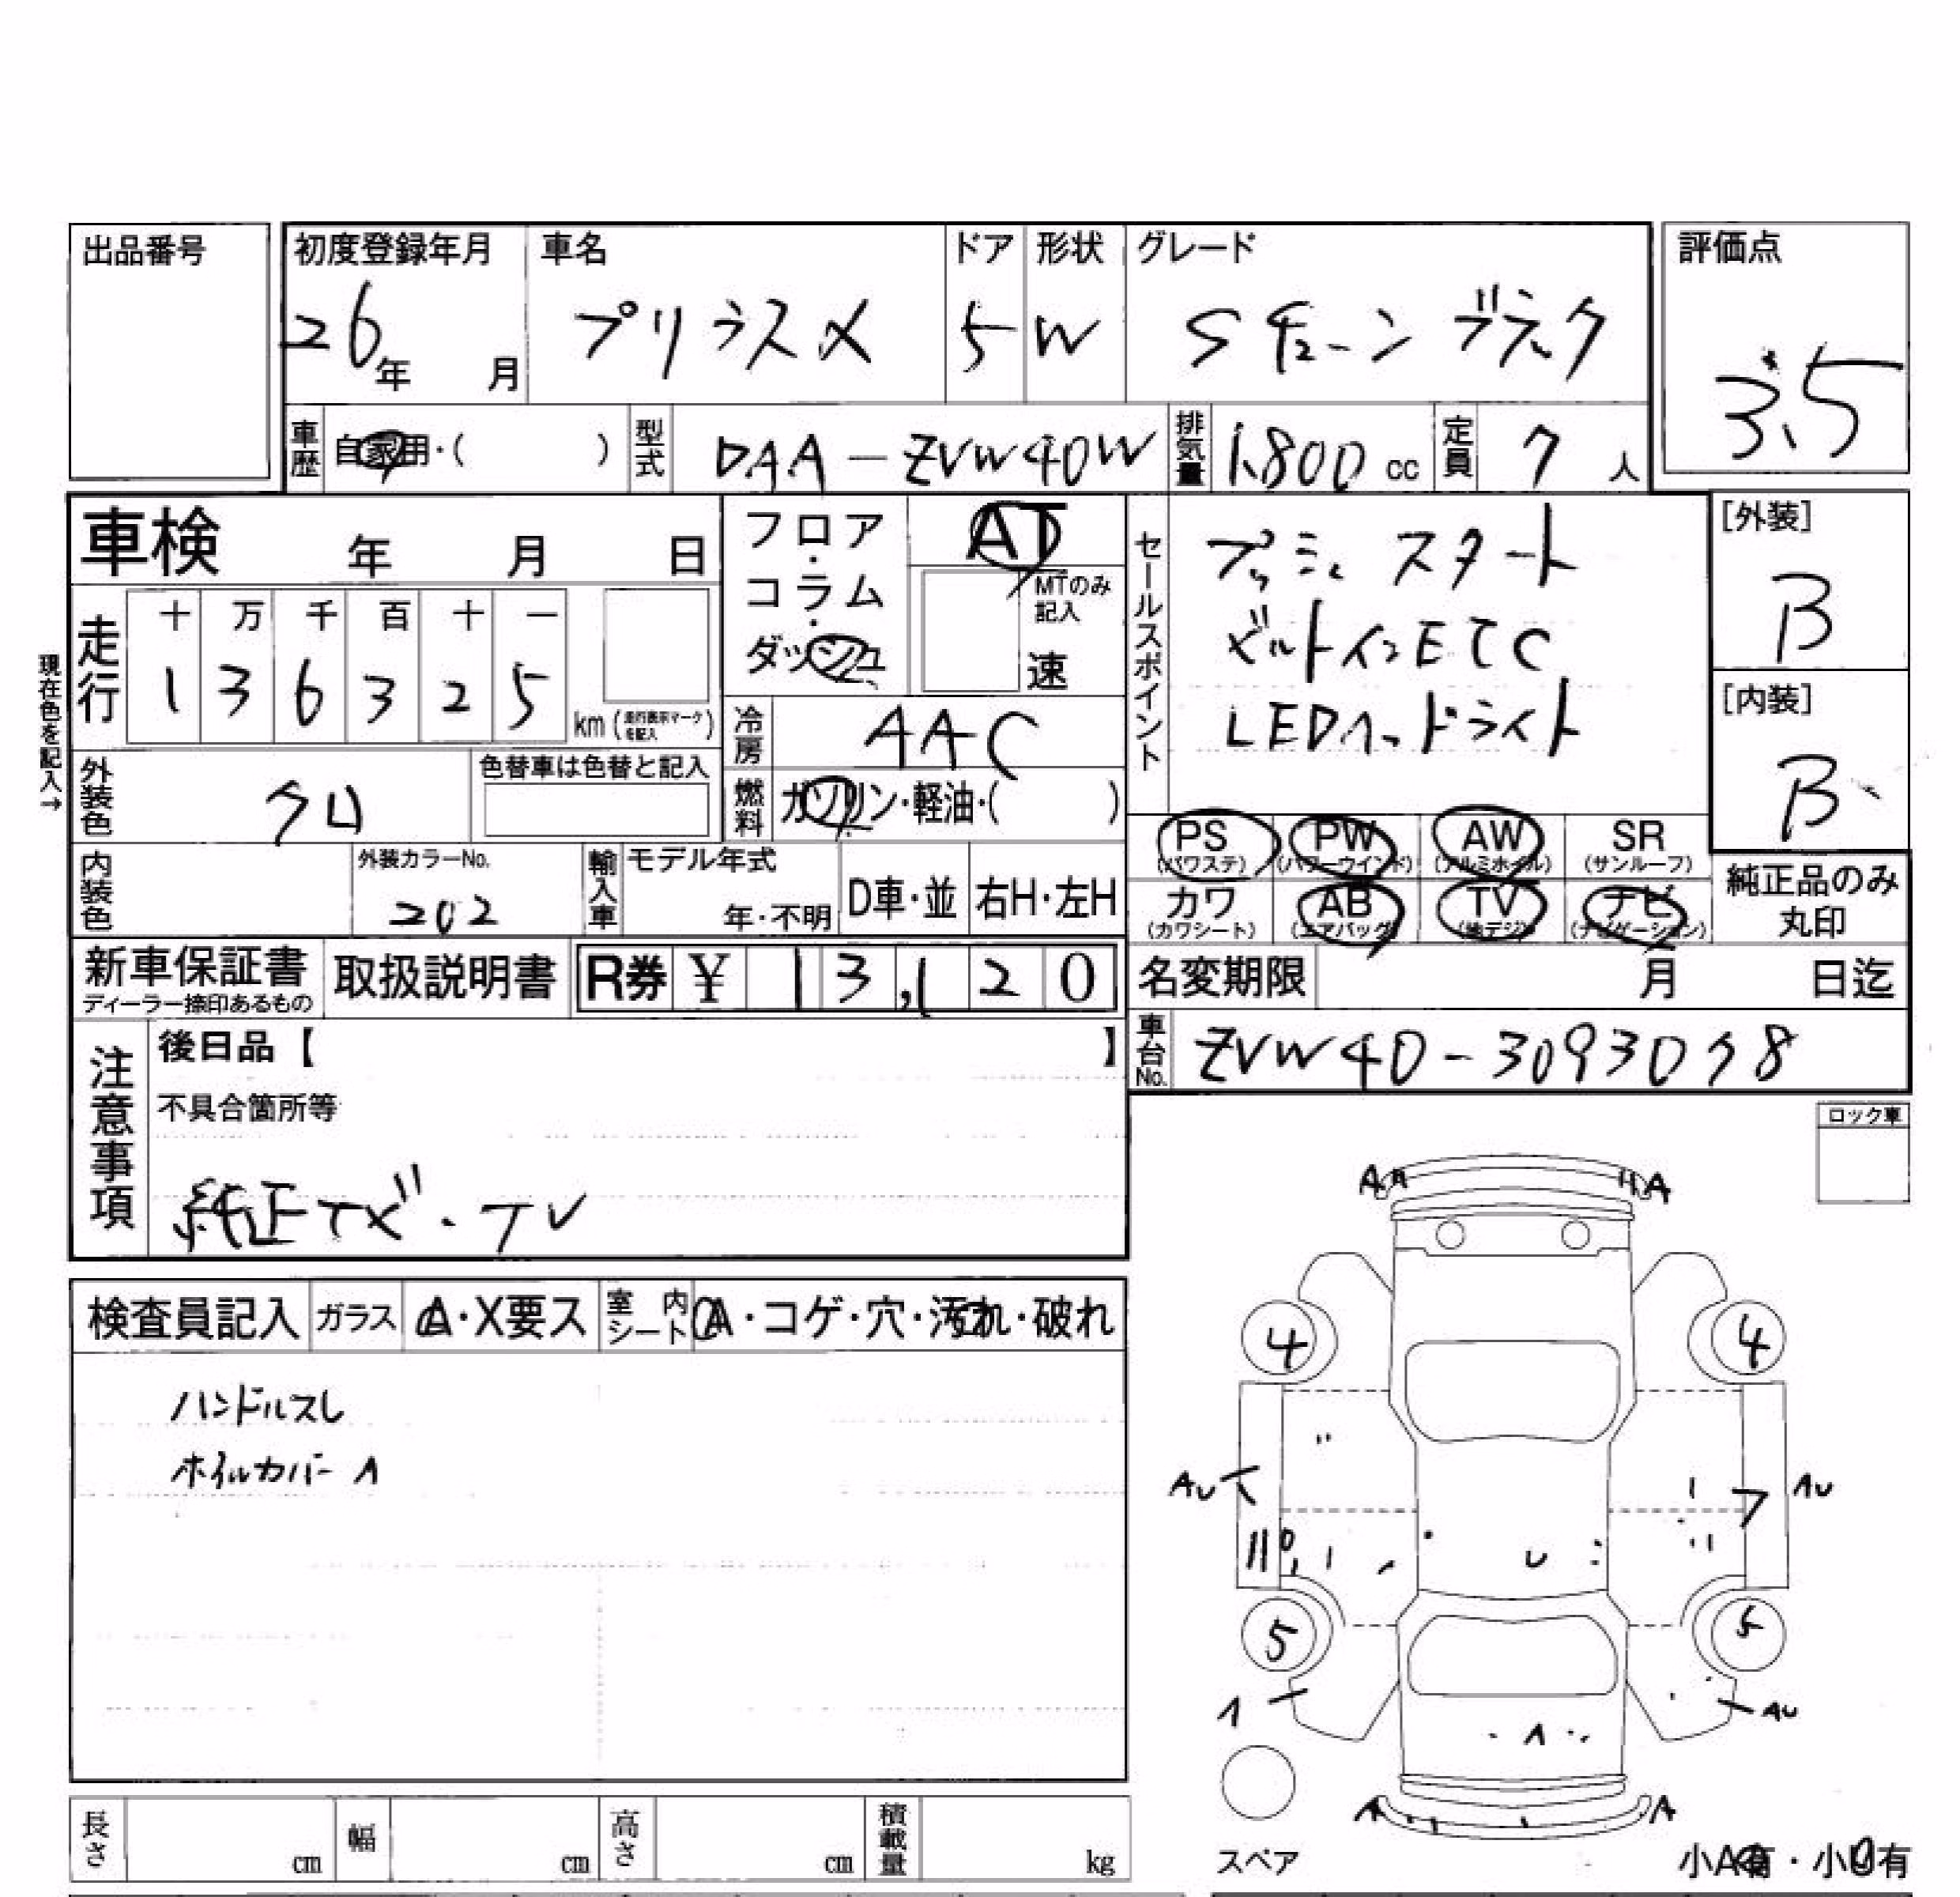 出品番号
初度登録年月 車名 ドア 形状 グレード 評価点
26年 月 プリウスα 5 W Sチューンブラック 3.5
車歴 自家用・( ) 型式 DAA-ZVW40W 排気量 1,800 cc 定員 7 人
車検 年 月 日
フロア・コラム・ダッシュ
AT
MTのみ記入
速
セールスポイント
プッシュスタート
ビルトインETC
LEDヘッドライト
[外装]
B
[内装]
B
現在色を記入→
走行
十 万 千 百 十 一
1 3 6 3 2 5 km (走行表示マークを記入)
冷房 AAC
外装色 クロ 色替車は色替と記入
燃料 ガソリン・軽油・( )
PS (パワステ) PW (パワーウインド) AW (アルミホイル) SR (サンルーフ)
カワ (カワシート) AB (エアバッグ) TV (地デジ) ナビ (ナビゲーション)
純正品のみ丸印
内装色 外装カラーNo. 202 輸入車 モデル年式 年・不明 D車・並 右H・左H
新車保証書 ディーラー捺印あるもの 取扱説明書 R券 ¥ 13,120
名変期限 月 日迄
車台No. ZVW40-3093078
注意事項
後日品【 】
不具合箇所等
純正ナビ・TV
ロック車
検査員記入 ガラス A・X要ス 室内シート A・コゲ・穴・汚れ・破れ
ハンドルスレ
ホイルカバーA
A A
4 4
AU AU
U
5 5
A AU
A
A A
スペア
小A有・小U有
長さ cm 幅 cm 高さ cm 積載量 kg